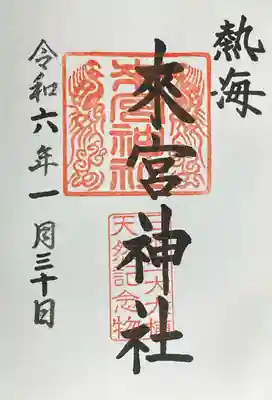 熱海
來宮神社
令和六年一月三十日
來宮神社
天然記念物